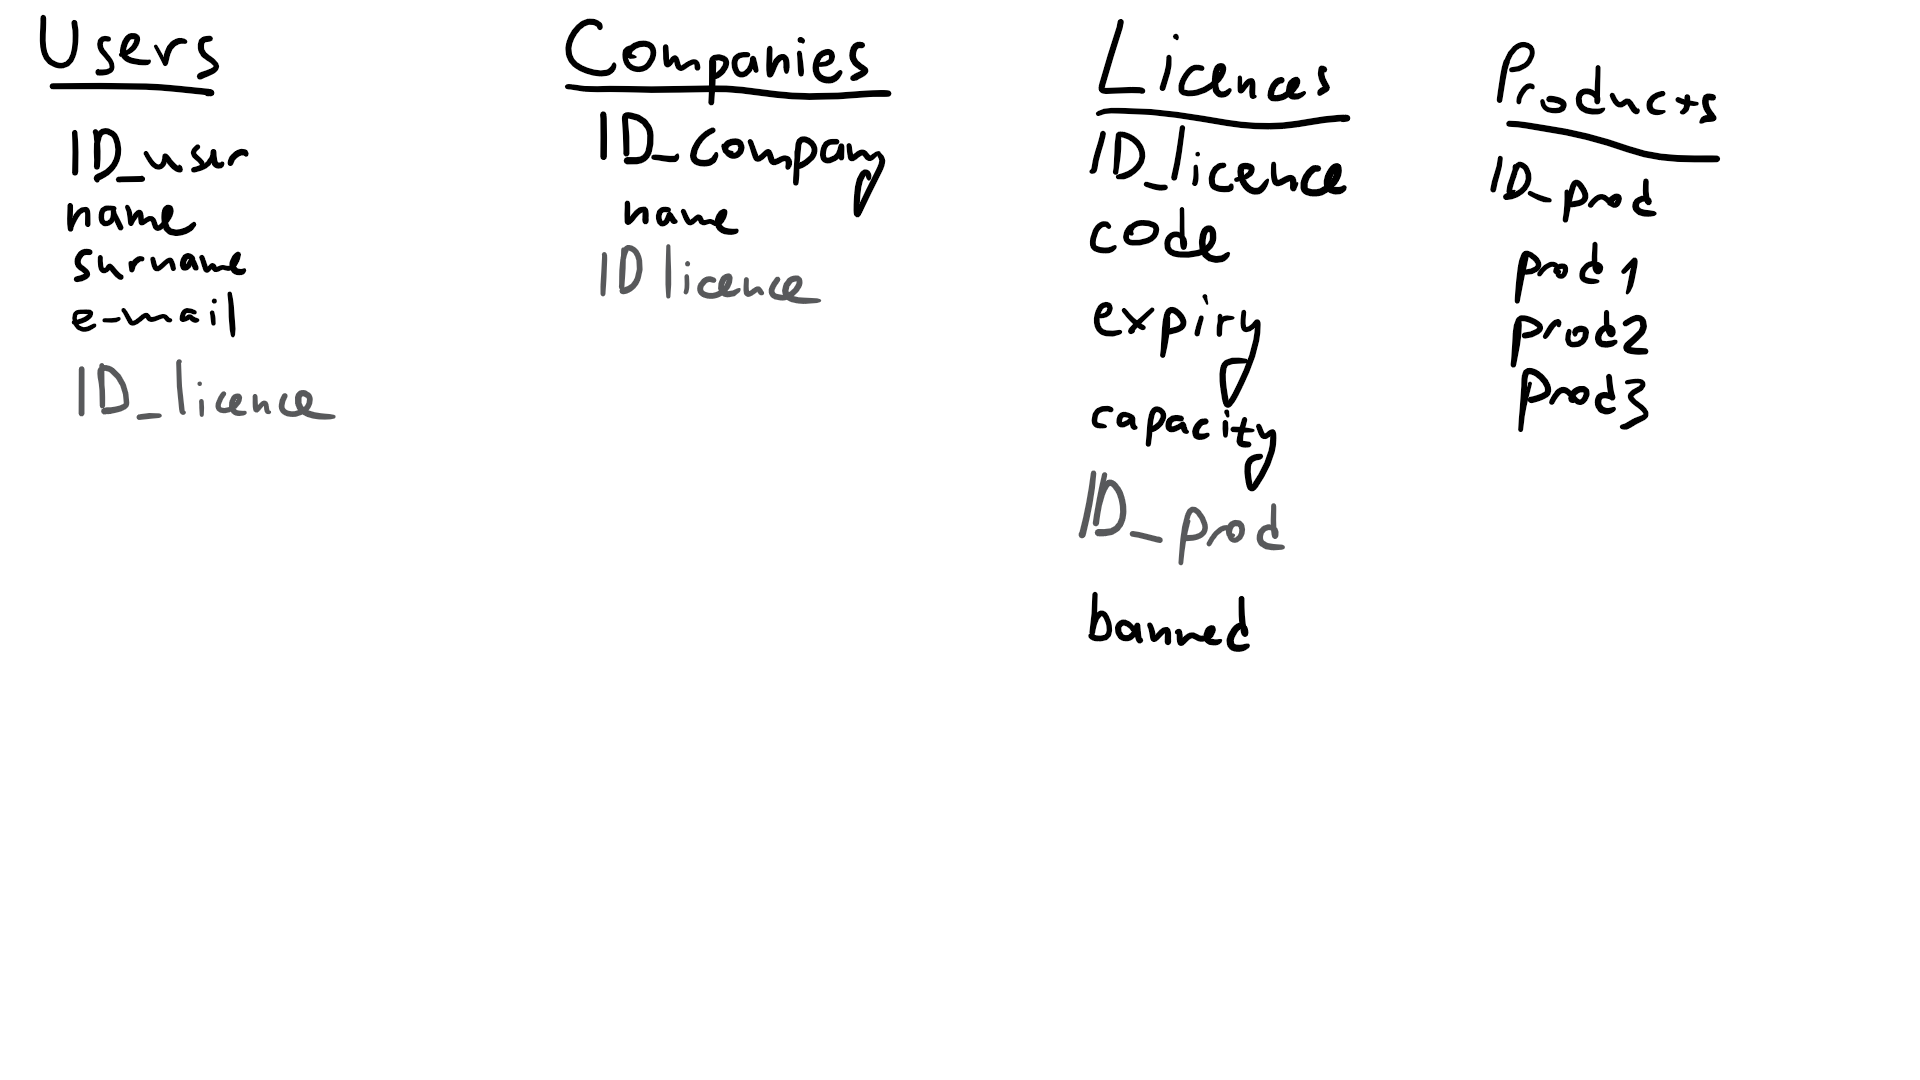 Users
ID_user
name
surname
e-mail
ID_licence
Companies
ID_company
name
ID licence
Licences
ID_licence
code
expiry
capacity
ID_prod
banned
Products
ID_prod
prod 1
prod2
prod3